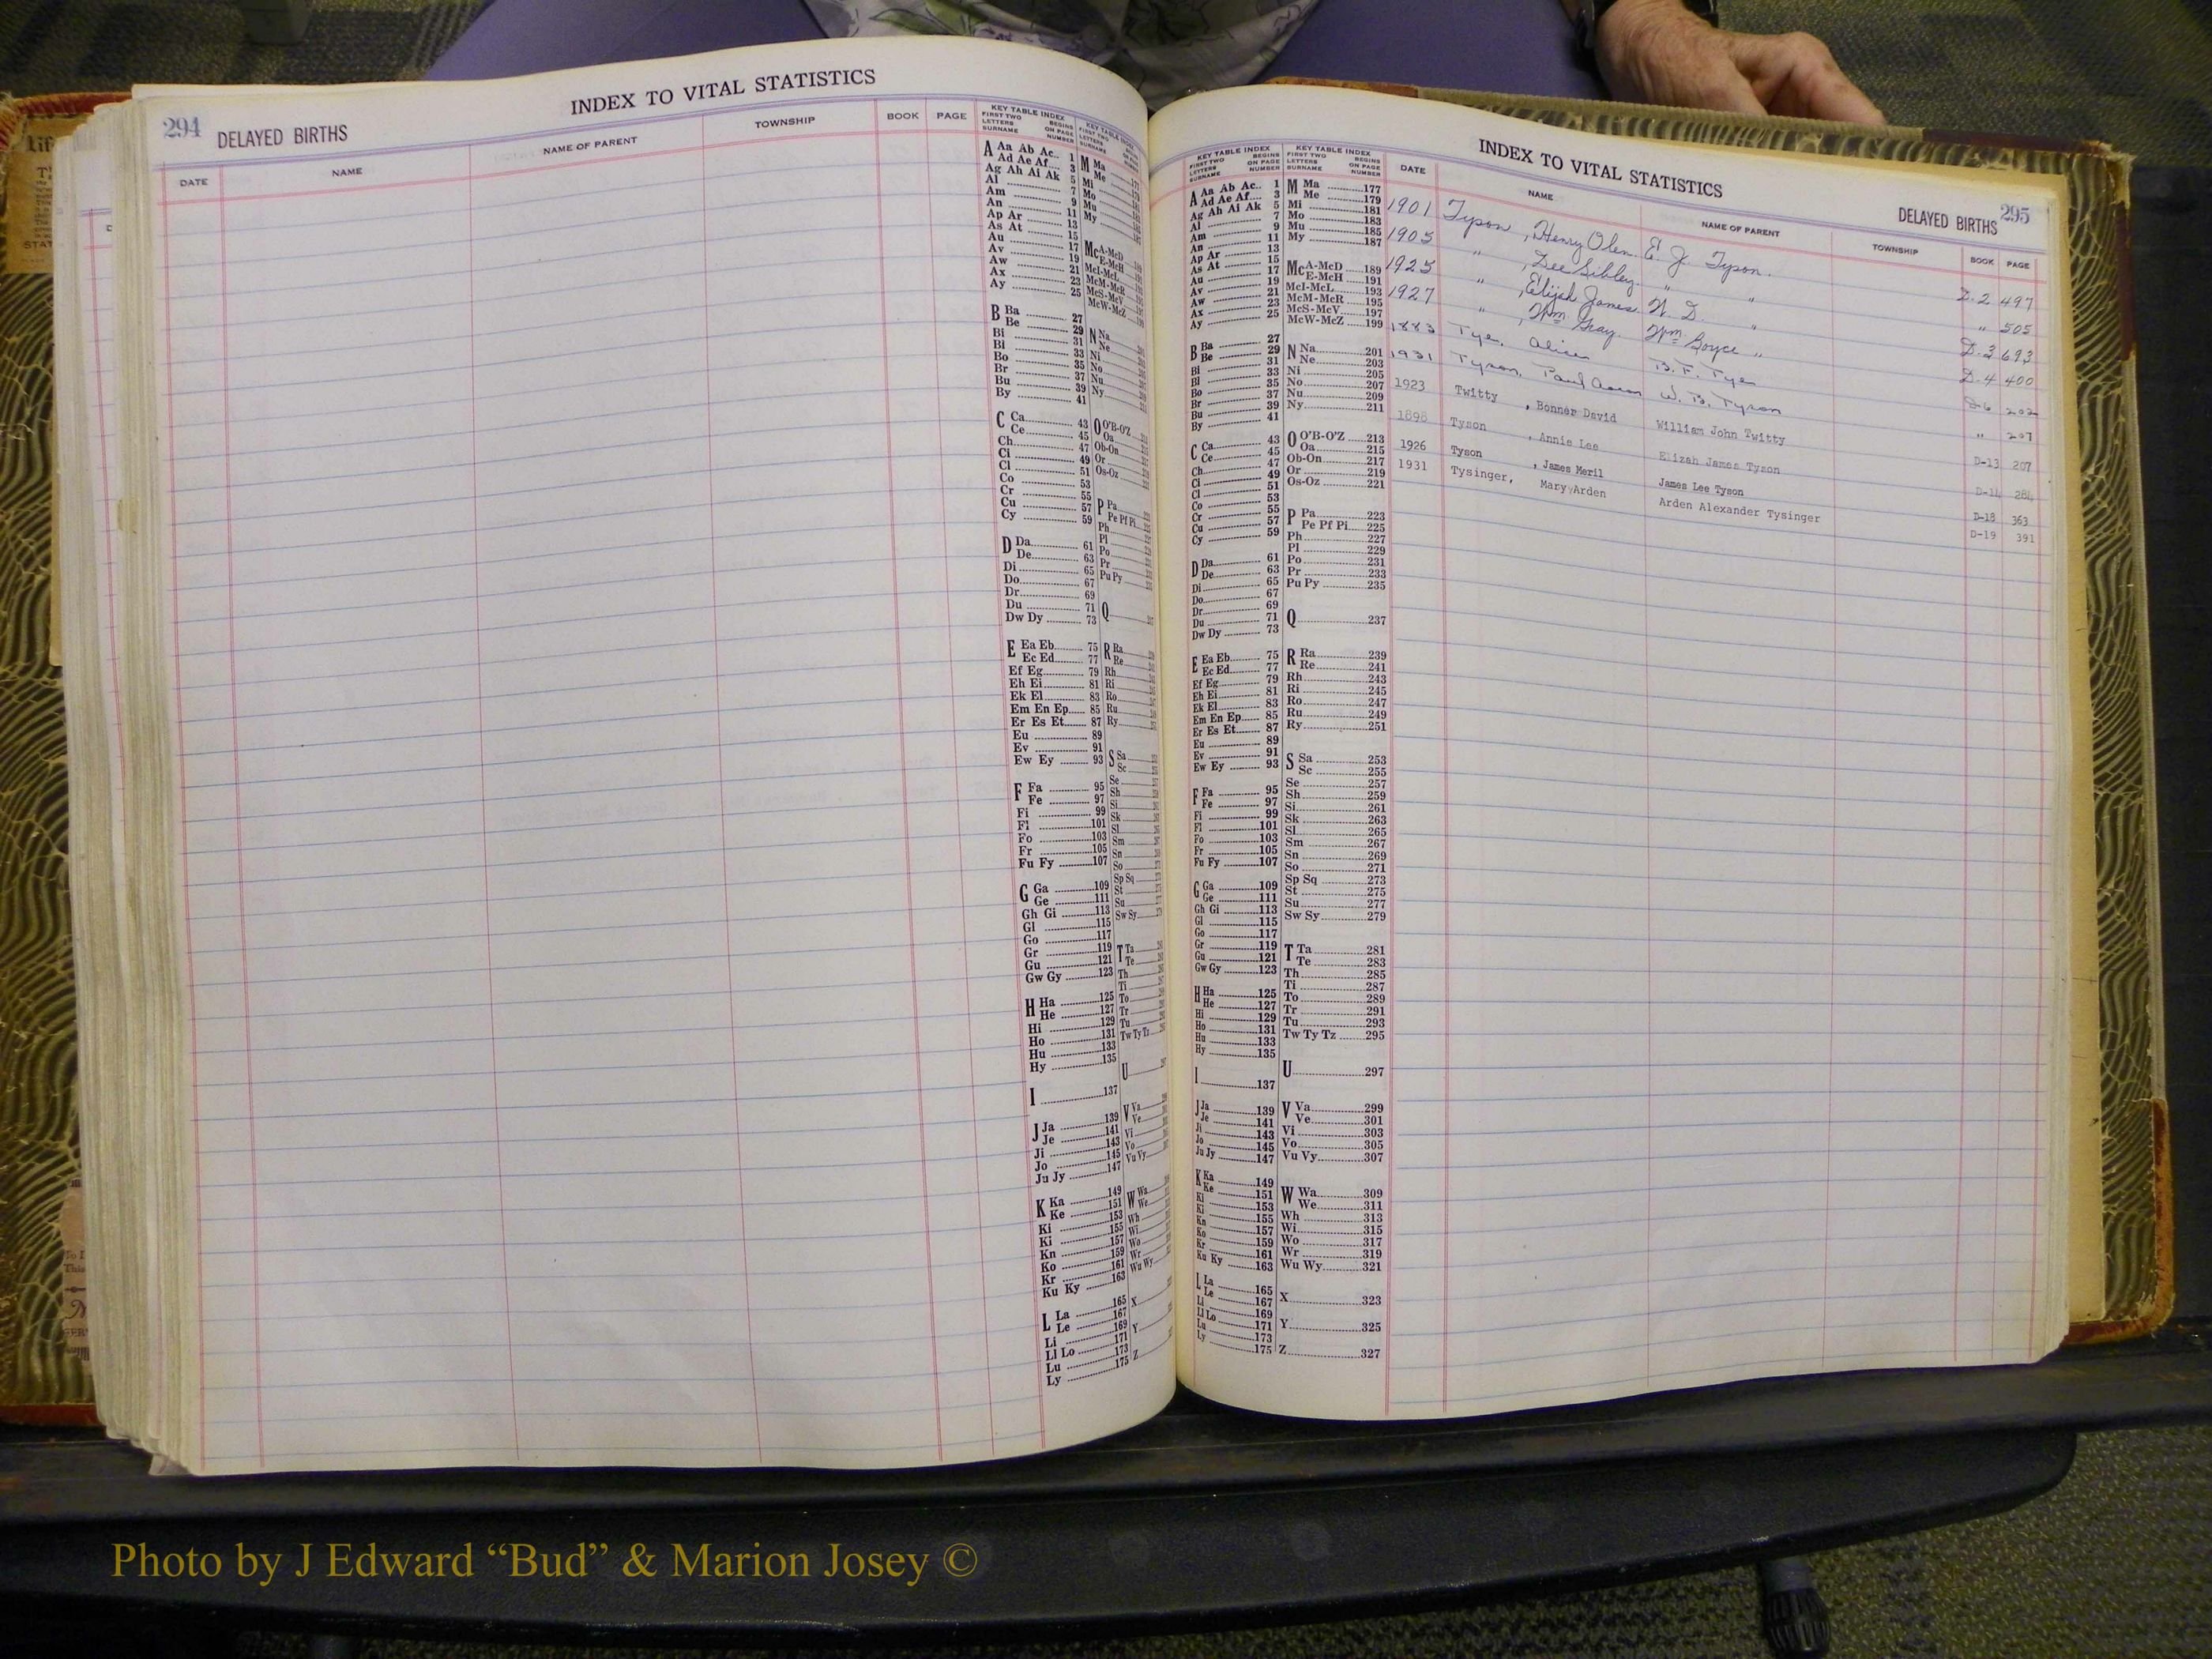 294
DELAYED BIRTHS
INDEX TO VITAL STATISTICS
DATE NAME NAME OF PARENT TOWNSHIP BOOK PAGE
KEY TABLE INDEX
FIRST TWO LETTERS SURNAME BEGINS ON PAGE NUMBER
A Aa Ab Ac.. 1
Ad Ae Af.... 3
Ag Ah Ai Ak 5
Al 7
Am 9
An 11
Ap Ar 13
As At 15
Au 17
Av 19
Aw 21
Ax 23
Ay 25
B Ba 27
Be 29
Bi 31
Bl 33
Bo 35
Br 37
Bu 39
By 41
C Ca 43
Ce 45
Ch 47
Ci 49
Cl 51
Co 53
Cr 55
Cu 57
Cy 59
D Da 61
De 63
Di 65
Do 67
Dr 69
Du 71
Dw Dy 73
E Ea Eb 75
Ec Ed 77
Ef Eg 79
Eh Ei 81
Ek El 83
Em En Ep 85
Er Es Et 87
Eu 89
Ev 91
Ew Ey 93
F Fa 95
Fe 97
Fi 99
Fl 101
Fo 103
Fr 105
Fu Fy 107
G Ga 109
Ge 111
Gh Gi 113
Gl 115
Go 117
Gr 119
Gu 121
Gw Gy 123
H Ha 125
He 127
Hi 129
Ho 131
Hu 133
Hy 135
I 137
J Ja 139
Je 141
Ji 143
Jo 145
Ju Jy 147
K Ka 149
Ke 151
Ki 153
Ki 155
Kn 157
Ko 159
Kr 161
Ku Ky 163
L La 165
Le 167
Li 169
Ll Lo 171
Lu 173
Ly 175
INDEX TO VITAL STATISTICS
DELAYED BIRTHS
295
KEY TABLE INDEX
FIRST TWO LETTERS SURNAME BEGINS ON PAGE NUMBER
M Ma 177
Me 179
Mi 181
Mo 183
Mu 185
My 187
McA-McD 189
McE-McH 191
McI-McL 193
McM-McR 195
McS-McV 197
McW-McZ 199
N Na 201
Ne 203
Ni 205
No 207
Nu 209
Ny 211
O O'B-O'Z 213
Oa 215
Ob-On 217
Or 219
Os-Oz 221
P Pa 223
Pe Pf Pi 225
Ph 227
Pl 229
Po 231
Pr 233
Pu Py 235
Q 237
R Ra 239
Re 241
Rh 243
Ri 245
Ro 247
Ru 249
Ry 251
S Sa 253
Sc 255
Se 257
Sh 259
Si 261
Sk 263
Sl 265
Sm 267
Sn 269
So 271
Sp Sq 273
St 275
Su 277
Sw Sy 279
T Ta 281
Te 283
Th 285
Ti 287
To 289
Tr 291
Tu 293
Tw Ty Tz 295
U 297
V Va 299
Ve 301
Vi 303
Vo 305
Vu Vy 307
W Wa 309
We 311
Wh 313
Wi 315
Wo 317
Wr 319
Wu Wy 321
X 323
Y 325
Z 327
DATE NAME NAME OF PARENT TOWNSHIP BOOK PAGE
1901 Tyson, Henry Olen E. J. Tyson. D-2 497
1905 " , Dee Sibley " " " 505
1925 " , Elijah James N. D. " D-3 693
1927 " , Wm. Gray Wm. Boyce " D-4 400
1883 Tye, Alice B. F. Tye D-6 202
1931 Tyson, Paul W. B. Tyson " 207
1923 Twitty , Bonner David William John Twitty D-13 207
1898 Tyson , Annie Lee Elizah James Tyson D-14 284
1926 Tyson , James Meril James Lee Tyson D-18 363
1931 Tysinger, Mary Arden Arden Alexander Tysinger D-19 391
Photo by J Edward “Bud” & Marion Josey ©